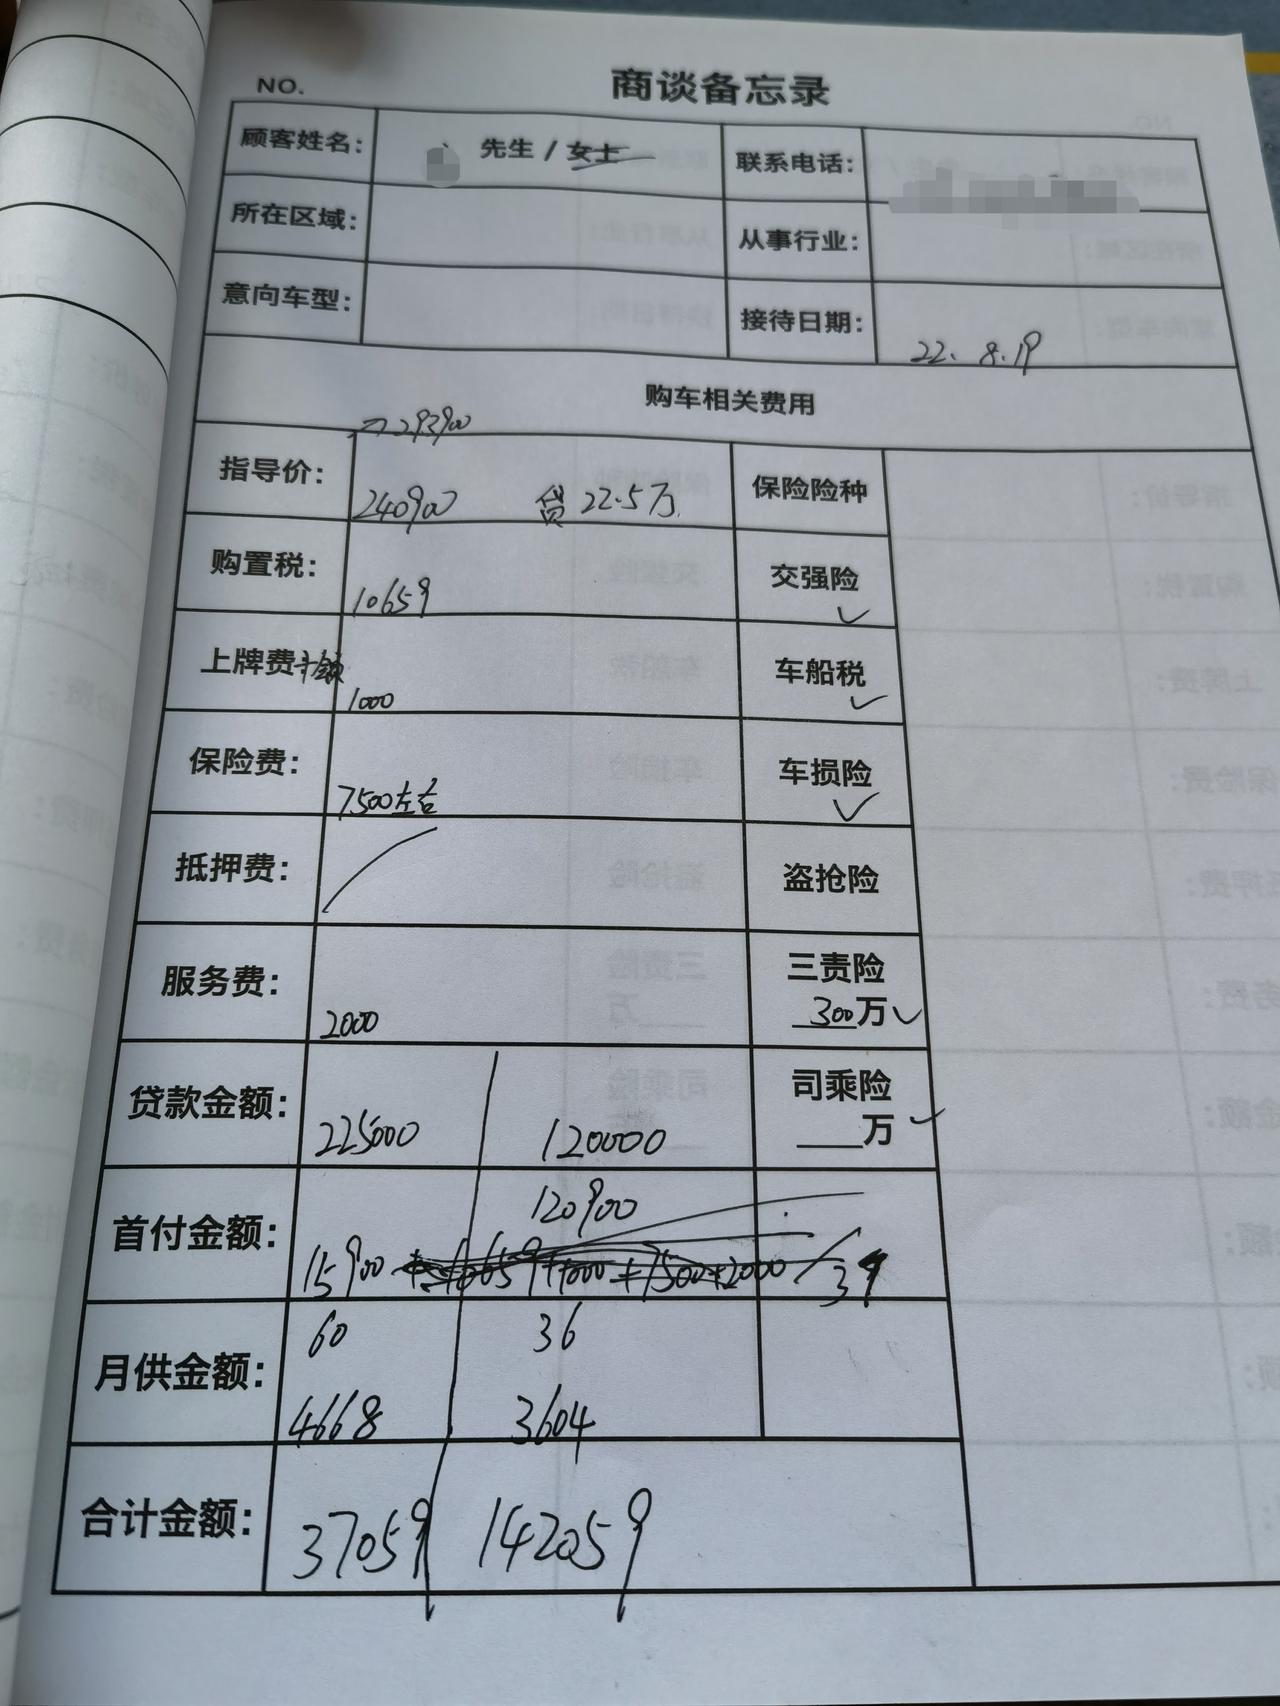 NO.
商谈备忘录
顾客姓名: 先生 / 女士 联系电话:
所在区域: 从事行业:
意向车型: 接待日期: 22. 8. 19
购车相关费用
293900
指导价: 240900 贷 22.5万 保险险种
购置税: 10659 交强险 ✓
上牌费 1000 车船税 ✓
保险费: 7500左右 车损险 ✓
抵押费: 盗抢险
服务费: 2000 三责险
300万 ✓
贷款金额: 225000 120000 司乘险
____万 ✓
首付金额: 15900 120900
10659+1000+7500+2000
月供金额: 60 36
4668 3604
合计金额: 37059 142059